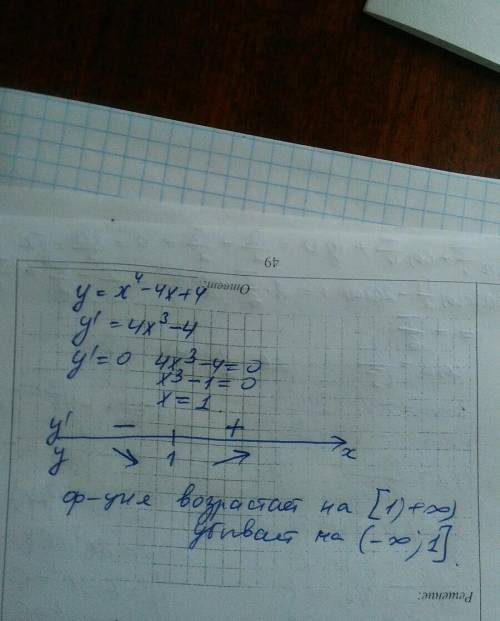 49
Ответ:
y = x⁴ - 4x + 4
y' = 4x³ - 4
y' = 0 4x³ - 4 = 0
x³ - 1 = 0
x = 1.
y' − +
y ↘ 1 ↗ x
ф-ция возрастает на [1; +∞)
убывает на (-∞; 1].
Решение: